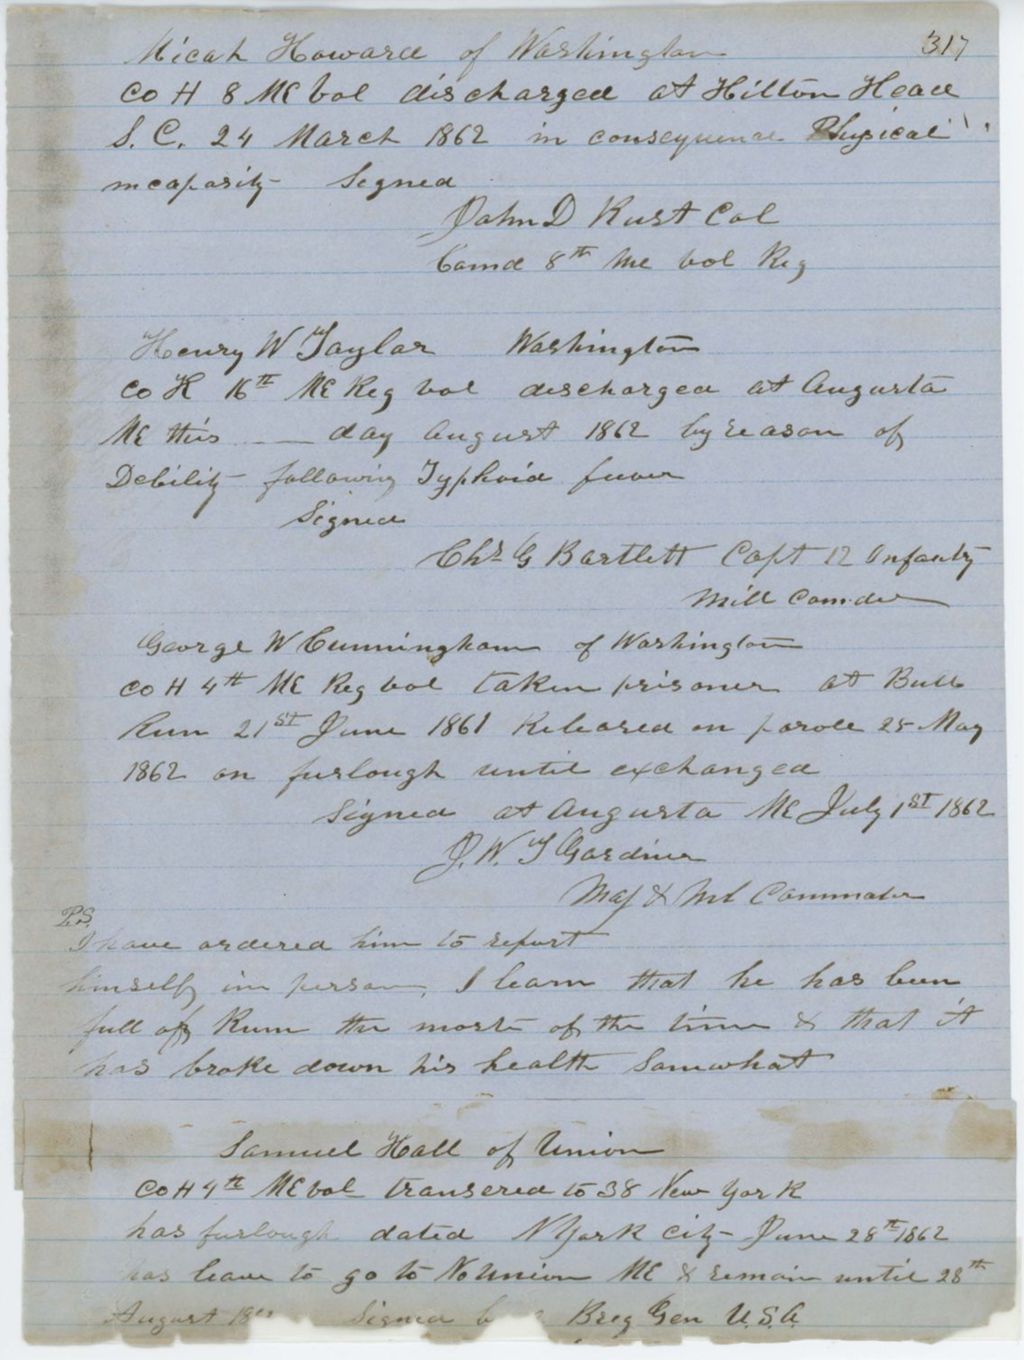 317
Micah Howard of Washington
Co H 8 Me Vol discharged at Hilton Head
S. C. 24 March 1862 in consequence Physical
incapasity Signed
John D Rust Col
Comd 8th Me Vol Reg
Henry W Taylor Washington
Co K 16th Me Reg vol discharged at Augusta
Me this ___ day August 1862 by reason of
Debility following Typhoid fever
Signed
Chs G Bartlett Capt 12 Infanty
Mill Comder
George W Cunningham of Washington
Co H 4th Me Reg vol taken prisoner at Bull
Run 21st June 1861 Released on parole 25 May
1862 on furlough until exchanged
Signed at Augusta Me July 1st 1862
J. W. T Gardiner
Maj & Mil Commader
P.S.
I have ordered him to report
himself in person, I learn that he has been
full off Rum the most of the time & that it
has broke down his health Somwhat
Samuel Hall of Union
Co H 4th Me vol transered to 38 New York
has furlough dated N York City June 28th 1862
has leave to go to No Union Me & remain until 28th
August Signed Breg Gen U.S.A.